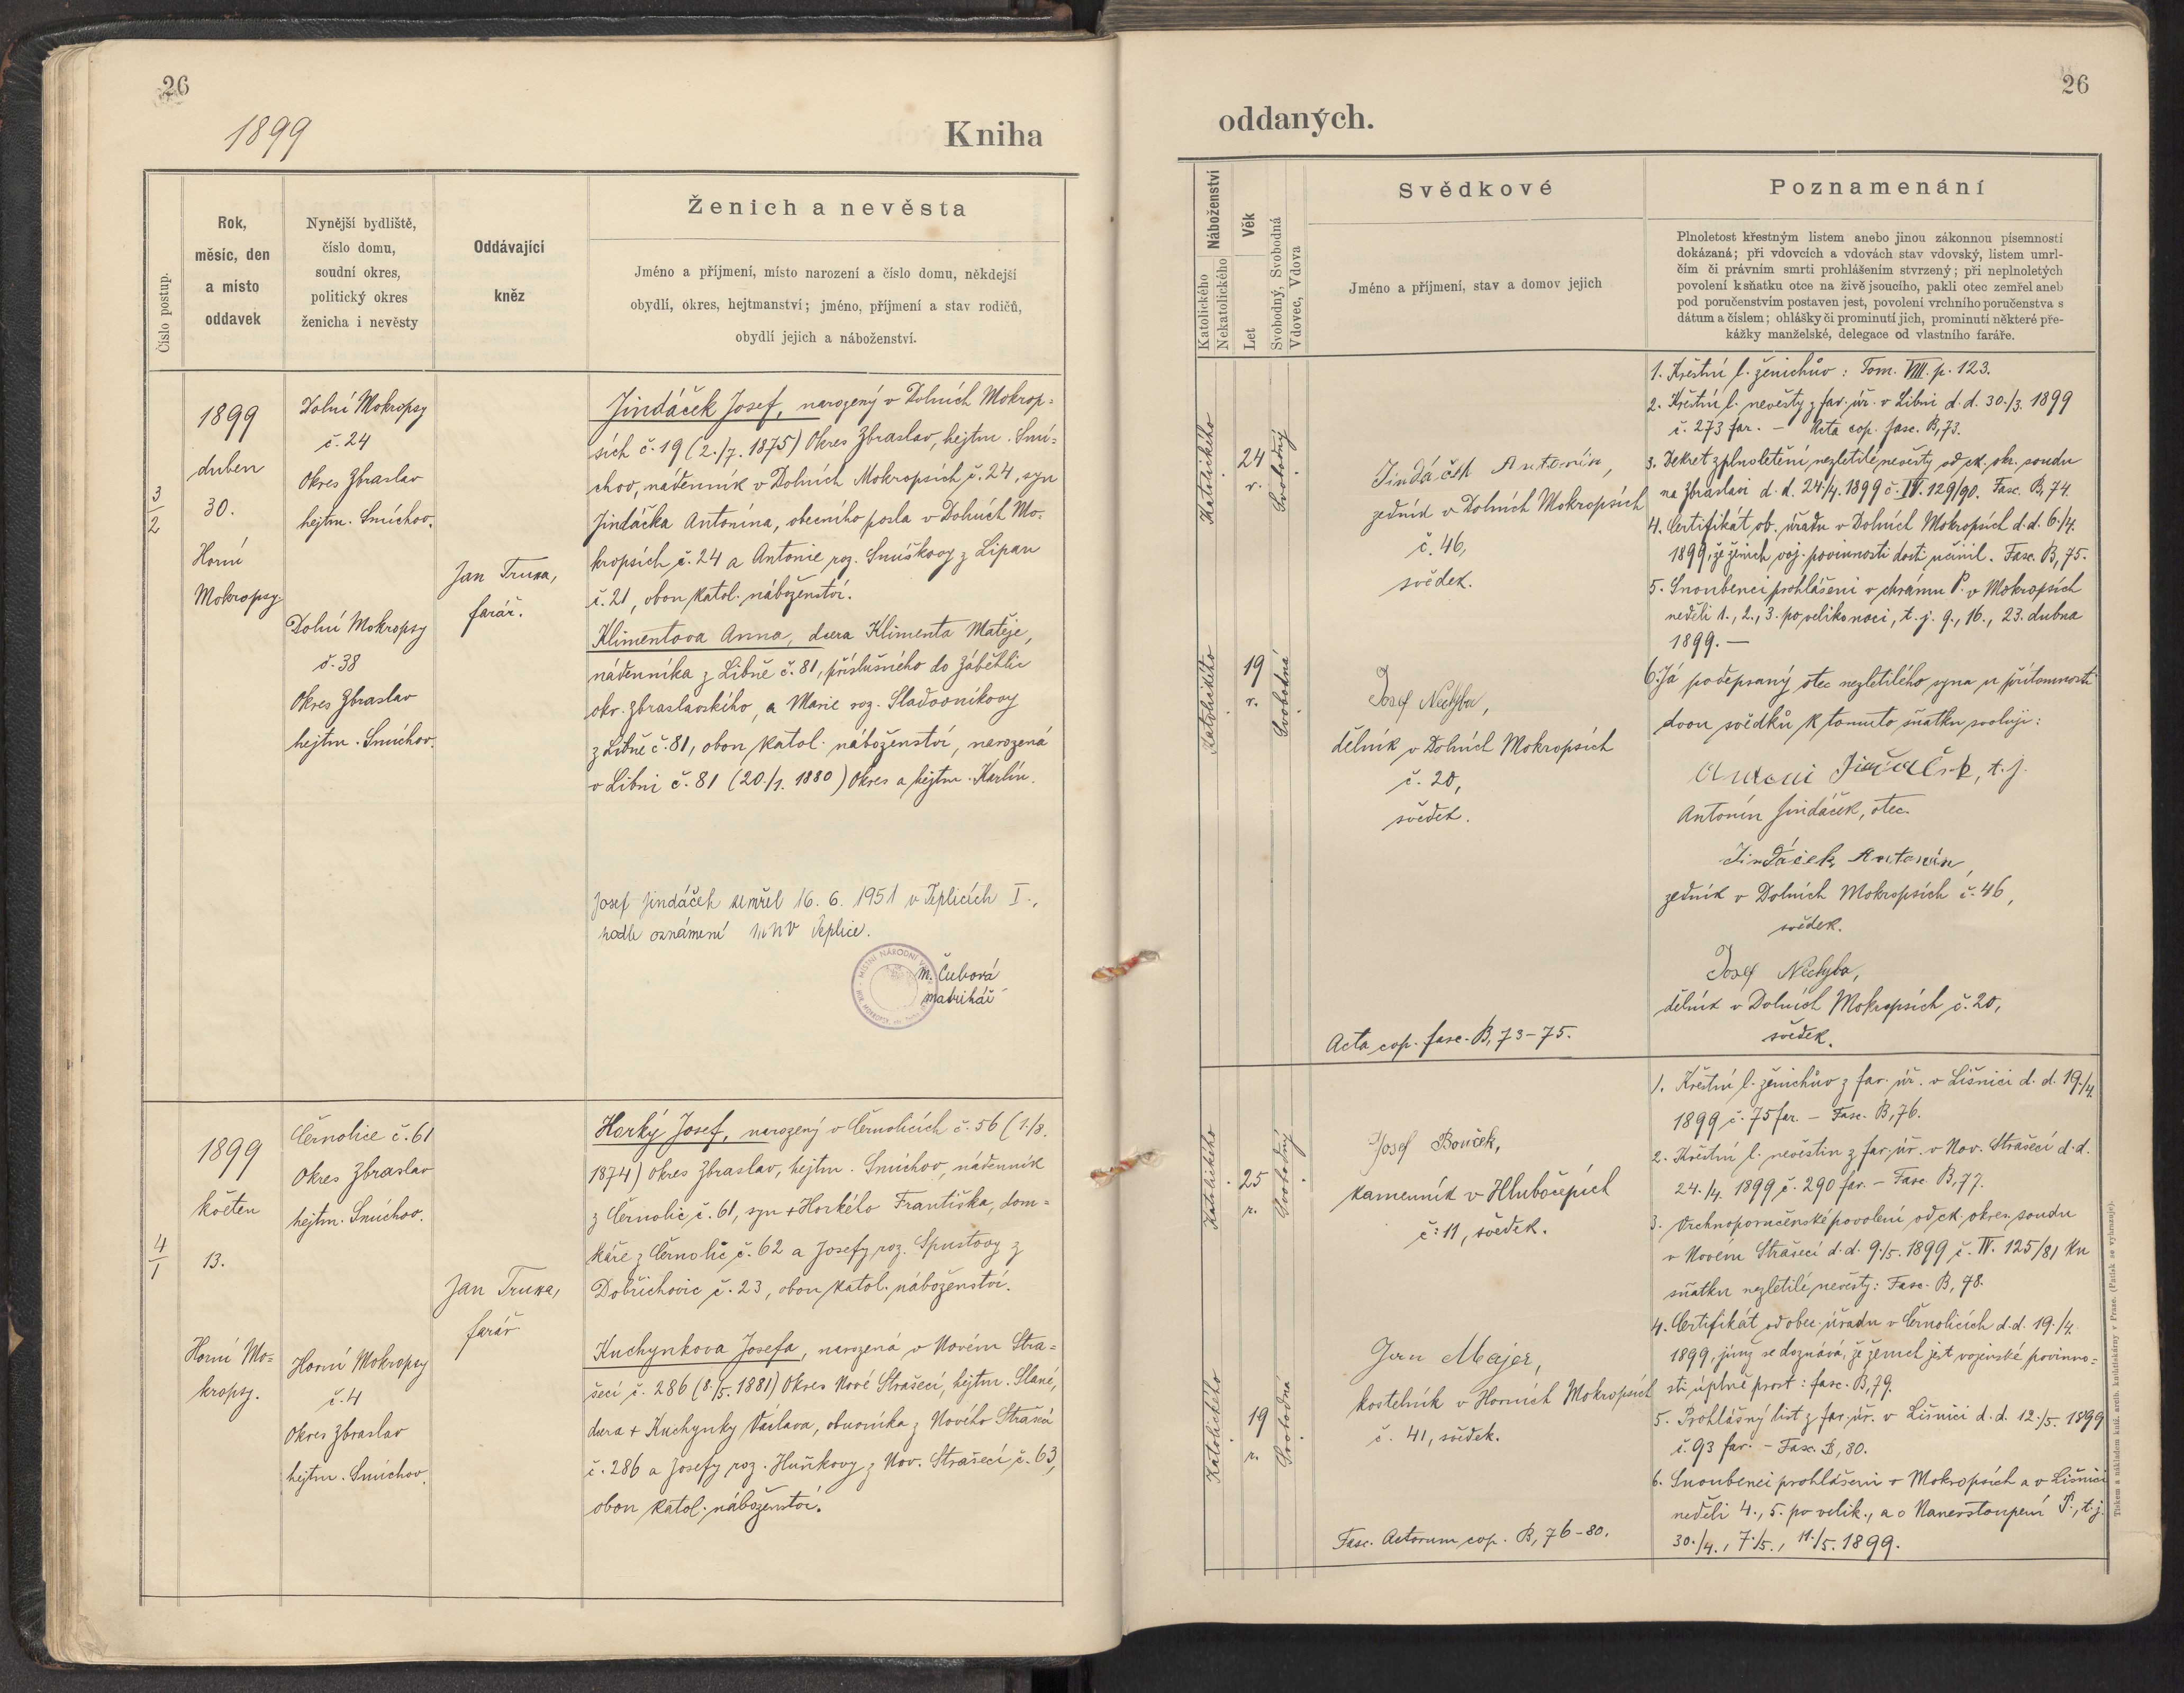 26
1899
Kniha
Číslo postup.
Rok,
měsíc, den
a místo
oddavek
Nynější bydliště,
číslo domu,
soudní okres,
politický okres
ženicha i nevěsty
Oddávající
kněz
Ženich a nevěsta
Jméno a příjmení, místo narození a číslo domu, někdejší
obydlí, okres, hejtmanství; jméno, příjmení a stav rodičů,
obydlí jejich a náboženství.
3
2
1899
duben
30.
Horní
Mokropsy
Dolní Mokropsy
č. 24
Okres Zbraslav
hejtm. Smíchov.
Dolní Mokropsy
č. 38
Okres Zbraslav
hejtm. Smíchov.
Jan Truxa,
farář.
Jindáček Josef, narozený v Dolních Mokrop-
sích č. 19 (2./7. 1875) Okres Zbraslav, hejtm. Smí-
chov, nádenník v Dolních Mokropsích č. 24, syn
Jindáčka Antonína, obecního posla v Dolních Mo-
kropsích č. 24 a Antonie roz. Smíškovy z Lipan
č. 21, obou katol. náboženství.
Klimentova Anna, dcera Klimenta Matěje,
nádenníka z Libně č. 81, příslušného do Záběhlic
okr. zbraslavského, a Marie roz. Sladovníkovy
z Libně č. 81, obou katol. náboženství, narozená
v Libni č. 81 (20./1. 1880) Okres a hejtm. Karlín.
Josef Jindáček zemřel 16. 6. 1951 v Teplicích I.,
podle oznámení MNV Teplice.
MÍSTNÍ NÁRODNÍ
M. Čubová
matrikář
4
1
1899
květen
13.
Horní Mo-
kropsy.
Černolice č. 61
Okres Zbraslav
hejtm. Smíchov.
Horní Mokropsy
č. 4
Okres Zbraslav
hejtm. Smíchov.
Jan Truxa,
farář
Horký Josef, narozený v Černolicích č. 56 (1./8.
1874) Okres Zbraslav, hejtm. Smíchov, nádenník
z Černolic č. 61, syn + Horkého Františka, dom-
káře z Černolic č. 62 a Josefy roz. Spustovy z
Dobřichovic č. 23, obou katol. náboženství.
Kuchynkova Josefa, narozená v Novém Stra-
šecí č. 286 (8./5. 1881) Okres Nové Strašecí, hejtm. Slané,
dcera + Kuchynky Václava, obuvníka z Nového Strašecí
č. 286 a Josefy roz. Huňkovy z Nov. Strašecí č. 63,
obou katol. náboženství.
26
oddaných.
Náboženství
Katolického
Nekatolického
Věk
Let
Svobodný, Svobodná
Vdovec, Vdova
Svědkové
Jméno a příjmení, stav a domov jejich
Poznamenání
Plnoletost křestným listem anebo jinou zákonnou písemností
dokázaná; při vdovcích a vdovách stav vdovský, listem umrl-
čím či právním smrti prohlášením stvrzený; při neplnoletých
povolení k sňatku otce na živě jsoucího, pakli otec zemřel aneb
pod poručenstvím postaven jest, povolení vrchního poručenstva s
dátum a číslem; ohlášky či prominutí jich, prominutí některé pře-
kážky manželské, delegace od vlastního faráře.
Katolického
24
r.
Svobodný
Jindáček Antonín,
zedník v Dolních Mokropsích
č. 46,
svědek.
Katolického
19
r.
Svobodná
Josef Nechyba,
dělník v Dolních Mokropsích
č. 20,
svědek.
Acta cop. fasc. B, 73-75.
1. Křestní l. ženichův: Tom. VIII. p. 123.
2. Křestní l. nevěsty z far. úř. v Libni d. d. 30./3. 1899
č. 273 far. - Acta cop. fasc. B, 73.
3. Dekret zplnoletění nezletilé nevěsty od ck. okr. soudu
na Zbraslavi d. d. 24./4. 1899 č. IV. 129/90. Fasc. B, 74.
4. Certifikát ob. úřadu v Dolních Mokropsích d. d. 6./4.
1899, že ženich voj. povinnosti dosti učinil. Fasc. B, 75.
5. Snoubenci prohlášeni v chrámu P. v Mokropsích
neděli 1., 2., 3. po velikonoci, t. j. 9., 16., 23. dubna
1899. —
6. Já podepsaný otec nezletilého syna u přítomnosti
dvou svědků k tomuto sňatku svoluji:
Antoni Jindaček, t. j.
Antonín Jindáček, otec.
Jindáček Antonín,
zedník v Dolních Mokropsích č. 46,
svědek.
Josef Nechyba,
dělník v Dolních Mokropsích č. 20,
svědek.
Katolického
25
r.
Svobodný
Josef Bouček,
kamenník v Hlubočepích
č. 11, svědek.
Katolického
19
r.
Svobodná
Jan Majer,
kostelník v Horních Mokropsích
č. 41, svědek.
Fasc. Actorum cop. B, 76-80.
1. Křestní l. ženichův z far. úř. v Lišnici d. d. 19./4.
1899 č. 75 far. - Fasc. B, 76.
2. Křestní l. nevěstin z far. úř. v Nov. Strašecí d. d.
24./4. 1899 č. 290 far. - Fasc. B, 77.
3. Vrchnoporučenské povolení od ck. okres. soudu
v Novém Strašecí d. d. 9./5. 1899 č. IV. 125/81 ku
sňatku nezletilé nevěsty: Fasc. B, 78.
4. Certifikát od obec. úřadu v Černolicích d. d. 19./4.
1899, jímž se doznává, že ženich jest vojenské povinno-
sti úplně prost: fasc. B, 79.
5. Prohlášný list z far. úř. v Lišnici d. d. 12./5. 1899
č. 93 far. - Fasc. B, 80.
6. Snoubenci prohlášeni v Mokropsích a v Lišnici
neděli 4., 5. po velik., a o Nanevstoupení P., t. j.
30./4., 7./5., 11./5. 1899.
Tiskem a nákladem kníž. arcib. knihtiskárny v Praze. (Patisk se vyhrazuje).